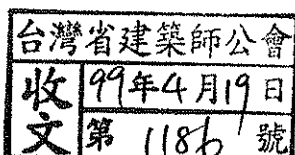 台灣省建築師公會
收文
99年4月19日
第 1186 號